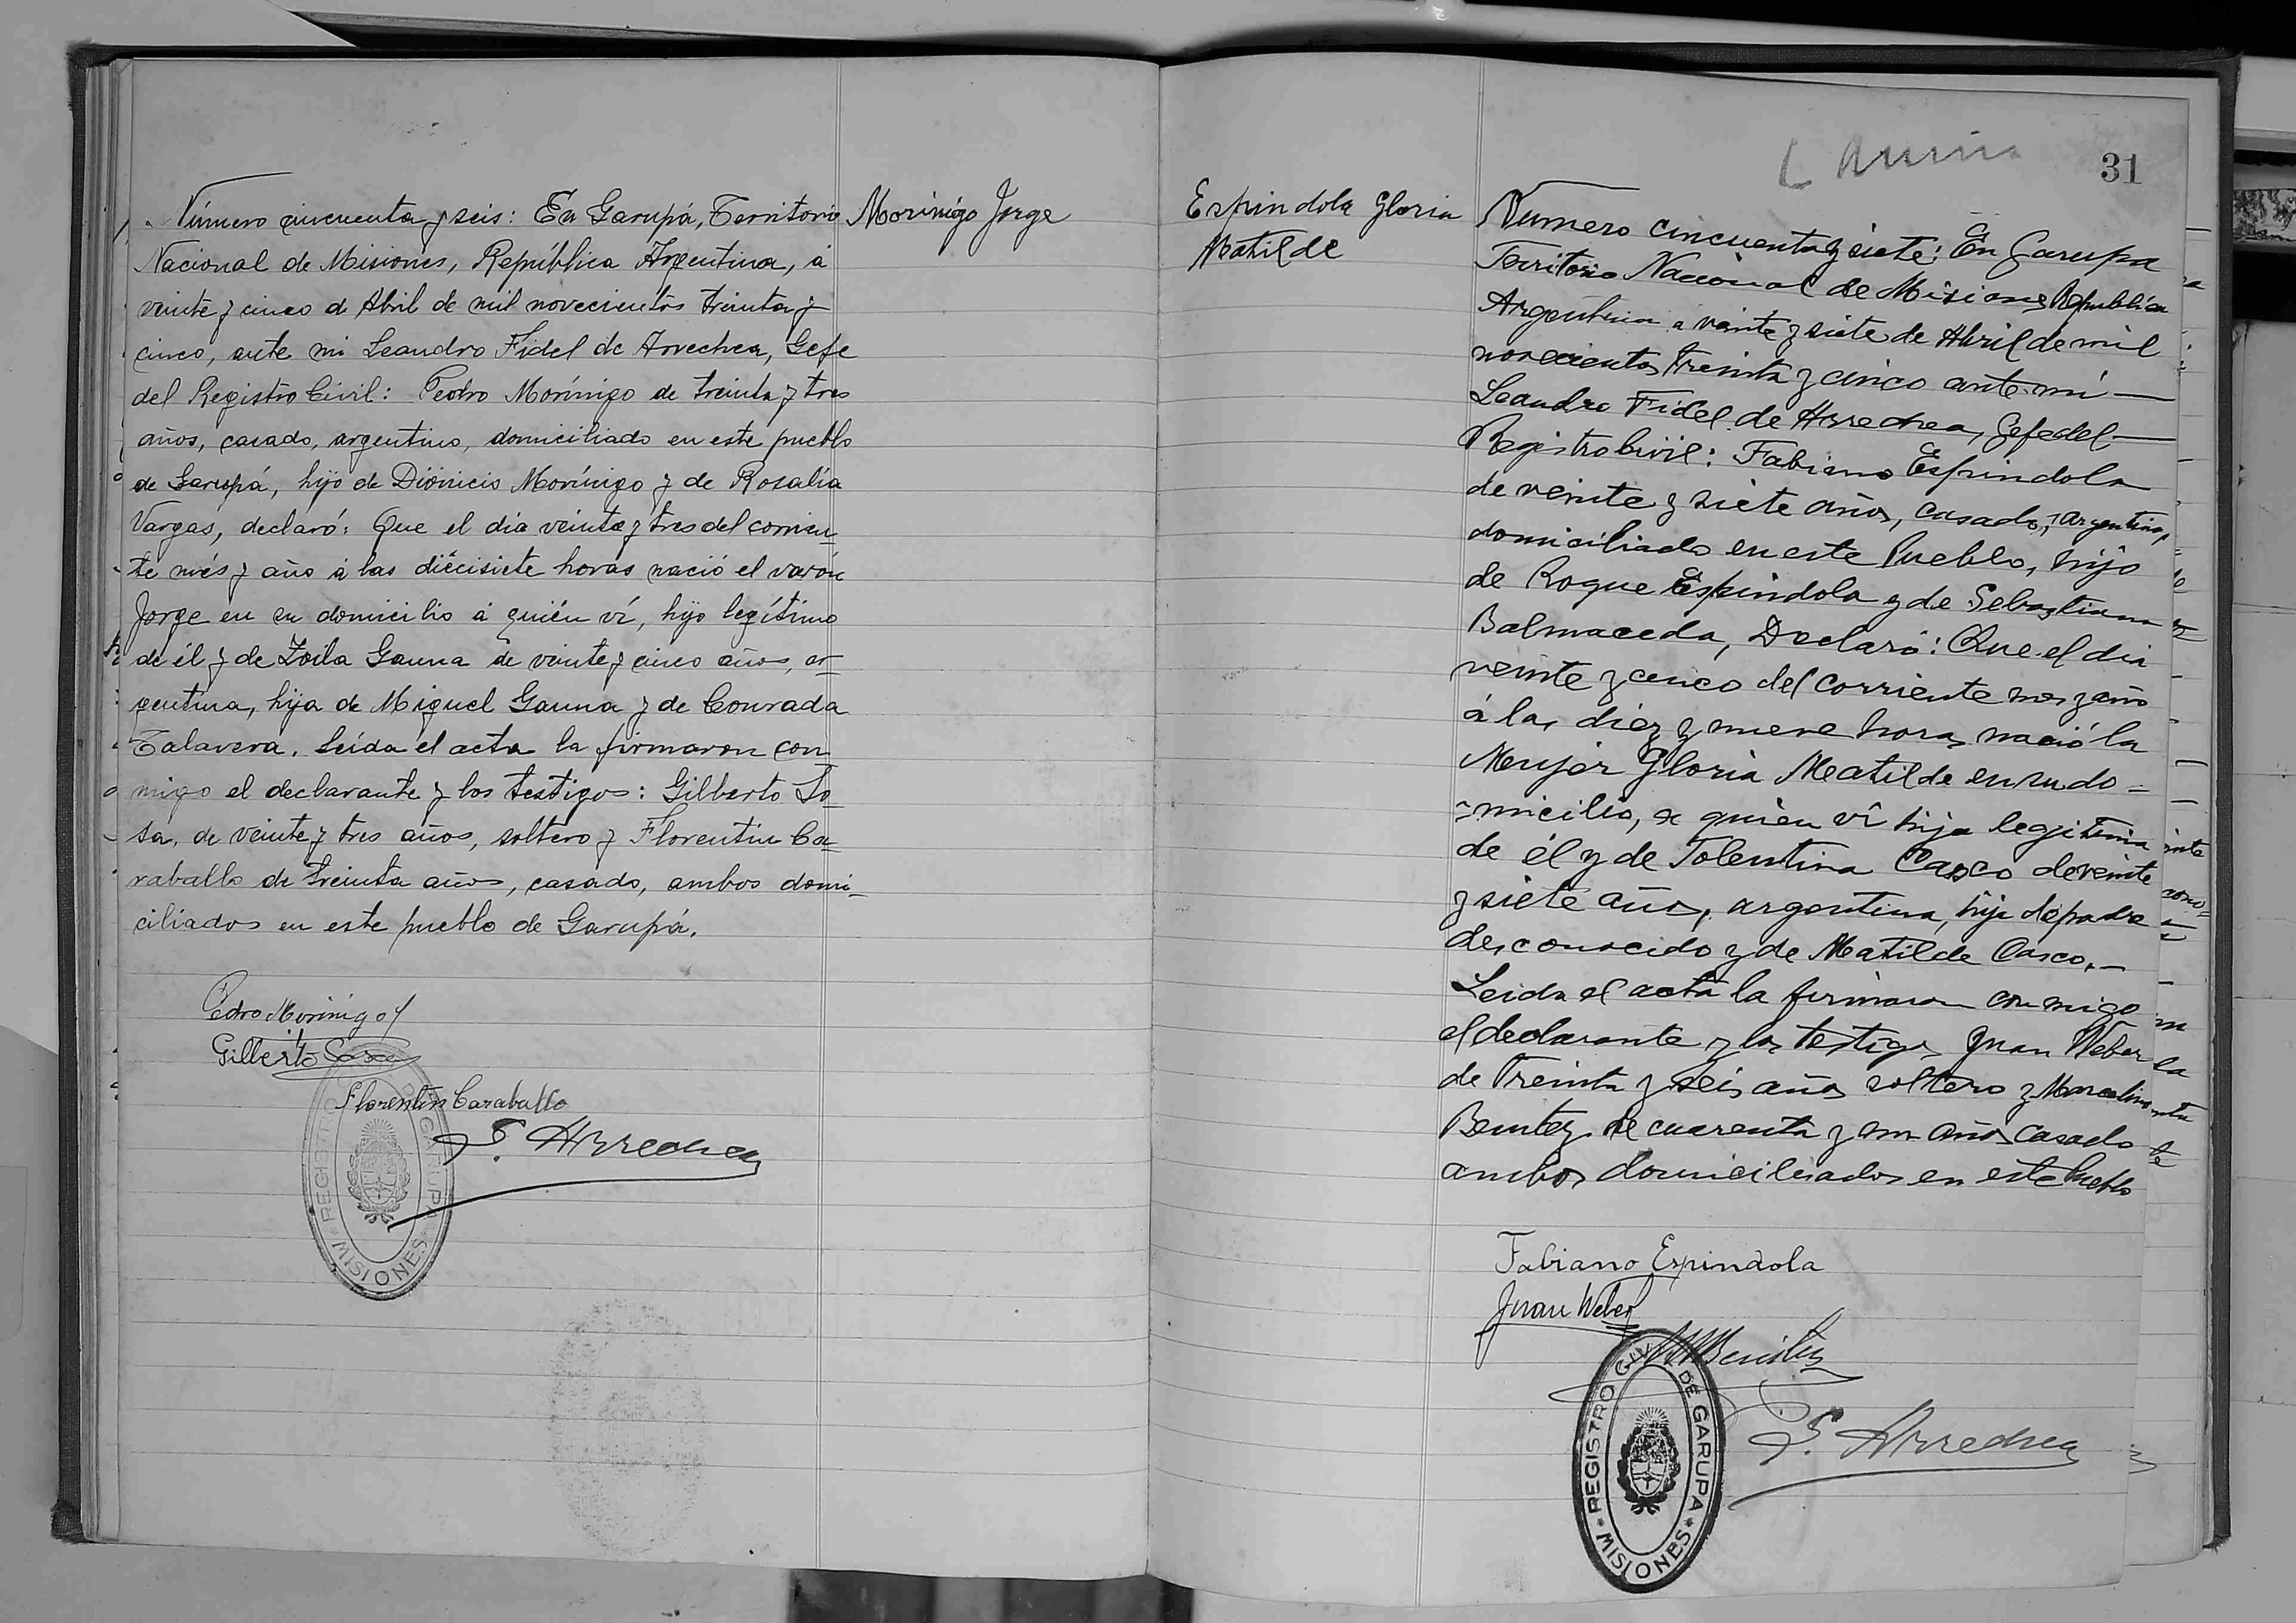 Número cincuenta y seis: En Garupá, Territorio
Nacional de Misiones, República Argentina, á
veinte y cinco d Abril de mil novecientos treinta y
cinco, ante mi Leandro Fidel de Arrechea, Gefe
del Registro Civil: Pedro Morínigo de treinta y tres
años, casado, argentino, domiciliado en este pueblo
de Garupá, hijo de Diónicio Morínigo y de Rosalía
Vargas, declaró: Que el dia veinte y tres del corrien-
te més y año á las diécisiete horas nació el varón
Jorge en su domicilio á quién ví, hijo legítimo
de él y de Zoila Gauna de veinte y cinco años, ar-
gentina, hija de Miguel Gauna y de Conrada
Talavera. Leída el acta la firmaron con
migo el declarante y los testigos: Gilberto So-
sa, de veinte y tres años, soltero y Florentin Ca-
raballo de treinta años, casado, ambos domi-
ciliados en este pueblo de Garupá.
Morinigo Jorge
Pedro Morinigo
Gilberto Sosa
Florentin Caraballo
F. Arrechea
REGISTRO GARUPA
MISIONES
31
Espindola Gloria
Matilde
Numero cincuenta y siete: En Garupa
Territorio Nacional de Misiones Republica
Argentina a veinte y siete de Abril de mil
novecientos treinta y cinco ante mí —
Leandro Fidel de Arrechea, Gefe del —
Registro Civil: Fabiano Espindola
de veinte y siete años, casado, argentino,
domiciliado en este Pueblo, hijo
de Roque Espindola y de Sebastiana
Balmaceda, Declaró: Que el dia
veinte y cinco del corriente mes y año
á las diez y nueve horas nació la
Mujer Gloria Matilde en su do =
= micilio, a quien ví hija legitima
de él y de Tolentina Casco de veinte
y siete años, argentina, hija de padre
desconocido y de Matilde Casco. —
Leida el acta la firmaron con migo
el declarante y los testigos Juan Weber
de Treinta y seis años soltero y Marcelino
Benitez de cuarenta y un años casado
ambos domiciliados en este Pueblo
Fabiano Espindola
Juan Weber
M Benitez
F. Arrechea
REGISTRO CIVIL DE GARUPA
* MISIONES *